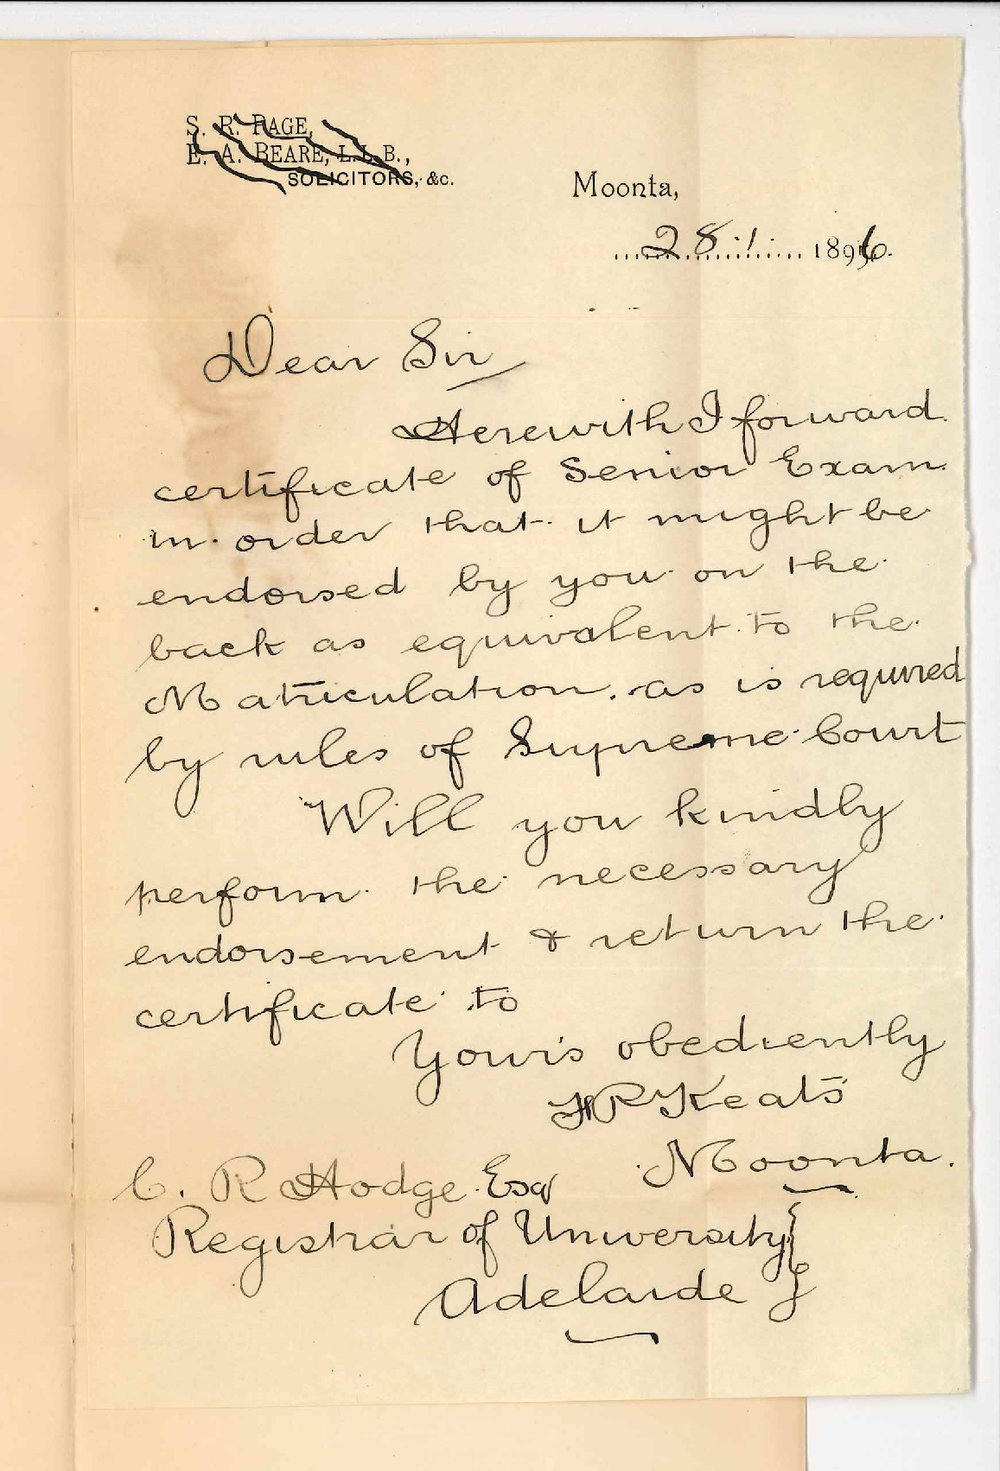 S. R. PAGE,
E. A. BEARE, L.L.B.,
SOLICITORS, &c.
Moonta,
28.1. 1896.
Dear Sir
Herewith I forward
certificate of Senior Exam.
in order that it might be
endorsed by you on the
back as equivalent to the
Matriculation. as is required
by rules of Supreme Court
Will you kindly
perform the necessary
endorsement & return the
certificate to
Your's obediently
Keats
Moonta.
C. R Hodge Esq
Registrar of University
Adelaide